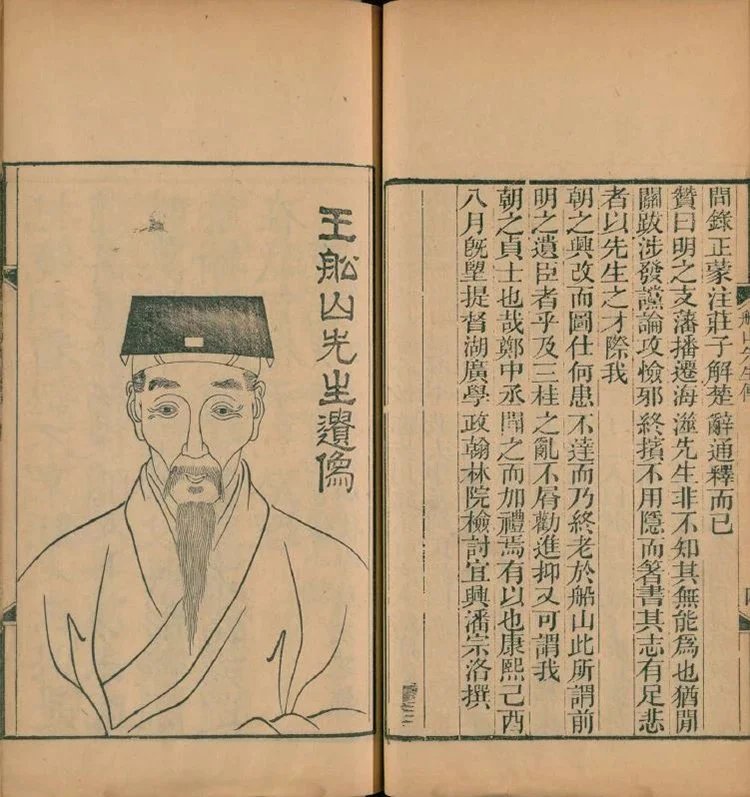 問錄正蒙注莊子解楚辭通釋而已
贊曰明之支藩播遷海澨先生非不知其無能爲也猶閒
關跋涉發讜論攻憸邪終擯不用隱而箸書其志有足悲
者以先生之才際我
朝之興改而圖仕何患不達而乃終老於船山此所謂前
明之遺臣者乎及三桂之亂不屑勸進抑又可謂我
朝之貞士也哉鄭中丞聞之而加禮焉有以也康熙己酉
八月旣望提督湖廣學政翰林院檢討宜興潘宗洛撰
王舩山先生遺像